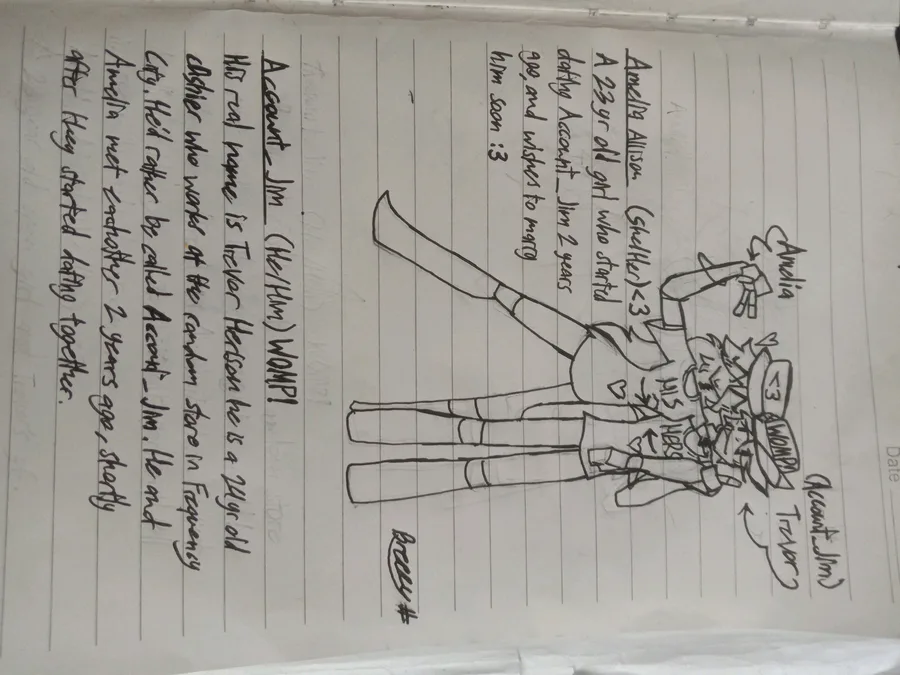 Date
(Account_Jim)
Trevor
(Amelia
<3
WOMP!
HIS
HERS
Amelia Allison (She/Her) <3
A 23yr old girl who started
dating Account_Jim 2 years
ago, and wishes to marry
him soon :3
Brozzy#
Account_Jim (He/Him) WOMP!
His real name is Trevor Herison he is a 24yr old
cashier who works at the random store in Frequency
City. He'd rather be called Account_Jim. He and
Amelia met eachother 2 years ago, shortly
after they started dating together.